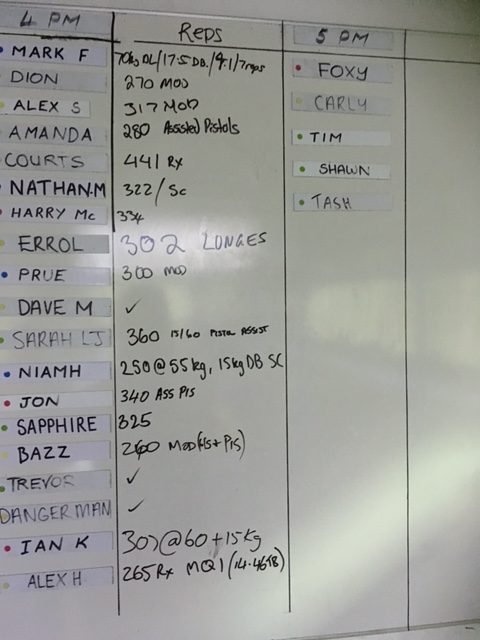 4 PM Reps 5 PM
MARK F 70kg DL/17.5 DB./ /7reps
DION 270 MOD
ALEX S 317 MOD
AMANDA 280 Assisted Pistols
COURTS 441 Rx
NATHAN.M 322/Sc
HARRY Mc 334
ERROL 302 LUNGES
PRUE 300 MOD
DAVE M ✓
SARAH LJ 360 15/60 PISTOL ASSIST
NIAMH 250@55kg, 15kg DB SC
JON 340 ASS PIS
SAPPHIRE 325
BAZZ 260 MOD( + PIS)
TREVOR ✓
DANGERMAN ✓
IAN K 307@60+15kg
ALEX H 265 Rx MQ1
FOXY
CARLY
TIM
SHAWN
TASH